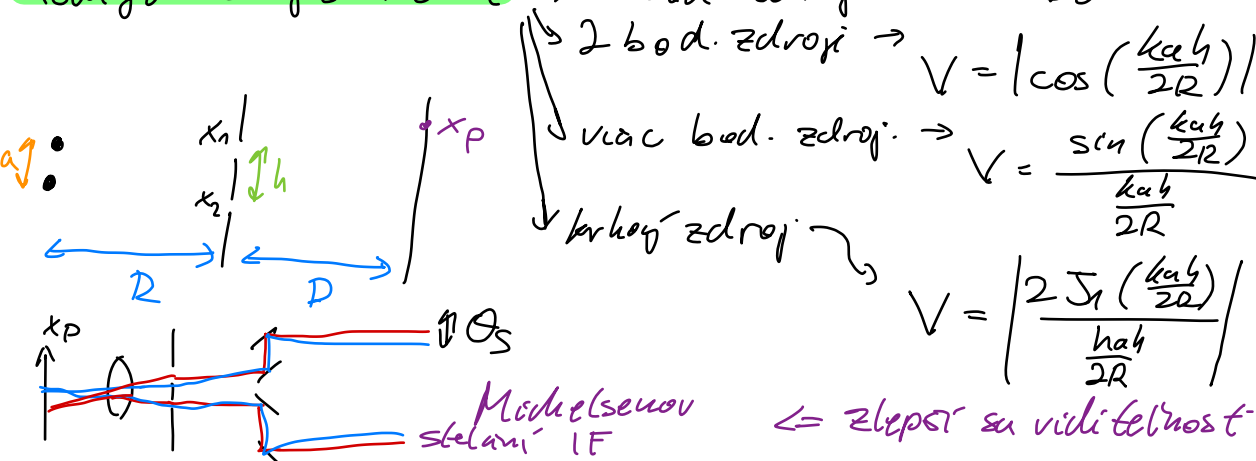 2 bod. zdroji → V = |cos(kah/2R)|
viac bod. zdroj. → V = sin(kah/2R) / (kah/2R)
kruhový zdroj
V = |2 J₁(kah/2R) / (kah/2R)|
a
x₁
x₂
h
x_P
R
D
x_P
θ_S
Michelsonov
stelární IF
<= zlepší sa viditeľnosť